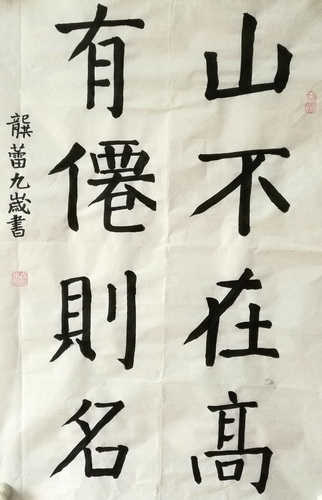 山不在高
有僊則名
龔蕾九歲書